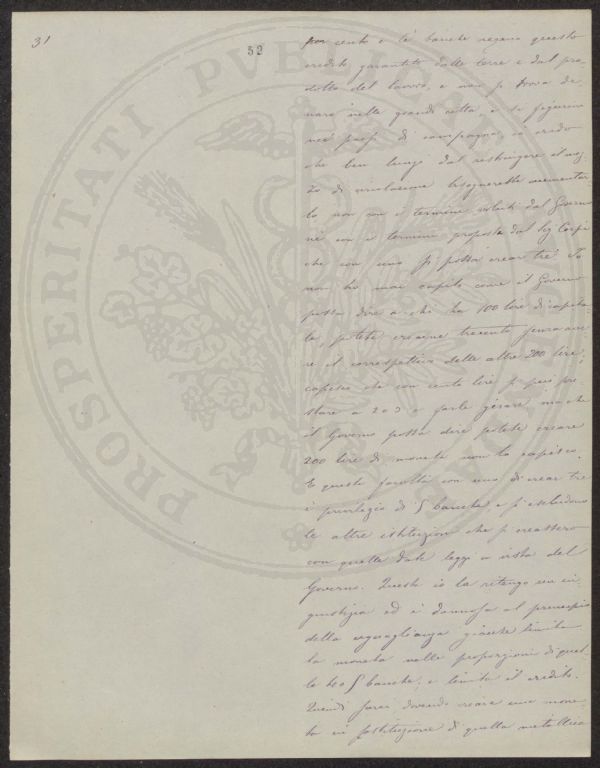 31
52
PROSPERITATI PVBLICAE
per cento e le banche negano questo
credito garantito dalle terre e dal pro-
dotto del lavoro, e non si trova de-
naro nelle grandi città e si figurino
nei paesi di campagna, io credo
che ben lungi dal restringere il
di circolazione bisognerebbe aumentar-
lo non con i termini voluti dal Governo
nè con i termini proposti dal Sig
che con uno si possa crear tre. Io
non ho mai capito come il Governo
possa dire a chi ha 100 lire di capita-
le, potete crearne trecento senza ave-
re il correspettivo delle altre 200 lire;
capisco che con cento lire si può pre-
stare a 2 o 3 e farle girare ma che
il Governo possa dire potete creare
200 lire di moneta non lo capisco.
E questa facoltà con uno di crear tre
è privilegio di 5 banche e si escludono
le altre istituzioni che si creassero
con quelle date leggi a vista del
Governo. Questa io la ritengo una in-
giustizia ed è dannosa al principio
della uguaglianza giacchè limita
la moneta nelle proporzioni di quel-
le 4 o 5 banche, e limita il credito.
Quindi dovendo creare una mone-
ta in sostituzione di quella metallica